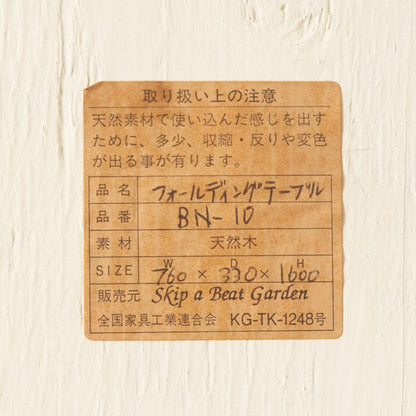 取り扱い上の注意
天然素材で使い込んだ感じを出す
ために、多少、収縮・反りや変色
が出る事が有ります。
品名 フォールディングテーブル
品番 BN-10
素材 天然木
SIZE W760 × D330 × H1600
販売元 Skip a Beat Garden
全国家具工業連合会 KG-TK-1248号